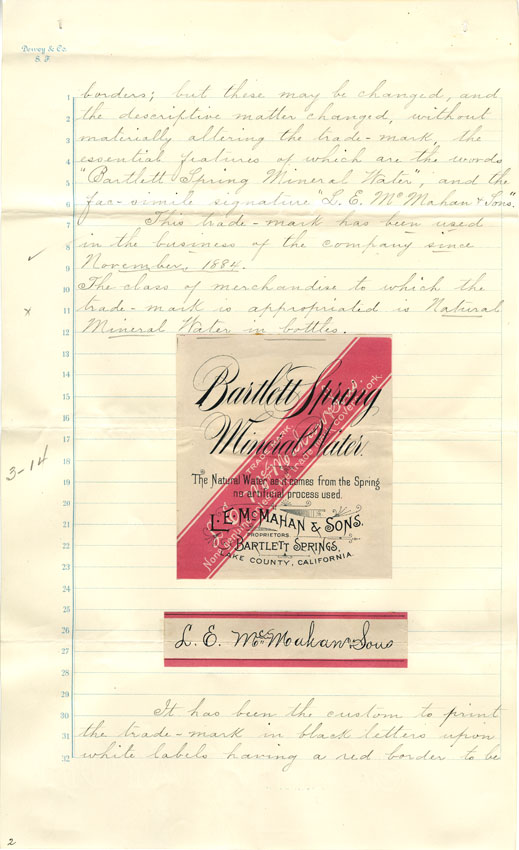 Dewey & Co.
S. F.
1 borders; but these may be changed, and
2 the descriptive matter changed, without
3 materially altering the trade-mark, the
4 essential features of which are the words
5 "Bartlett Spring Mineral Water", and the
6 fac-simile signature "L. E. Mc Mahan & Sons".
7 This trade-mark has been used
8 in the business of the company since
9 November, 1884.
10 The class of merchandise to which the
11 trade-mark is appropriated is Natural
12 Mineral Water in bottles.
13
14
15
16
17
18
19
20
21
22
23
24
25
26
27
28
29
3-14
x
Bartlett Spring
Mineral Water.
TRADE MARK.
The Natural Water as it comes from the Spring
no artificial process used.
L. E. McMAHAN & SONS.
PROPRIETORS.
BARTLETT SPRINGS,
LAKE COUNTY, CALIFORNIA.
L. E. McMahan & Sons
30 It has been the custom to print
31 the trade-mark in black letters upon
32 white labels having a red border to be
2